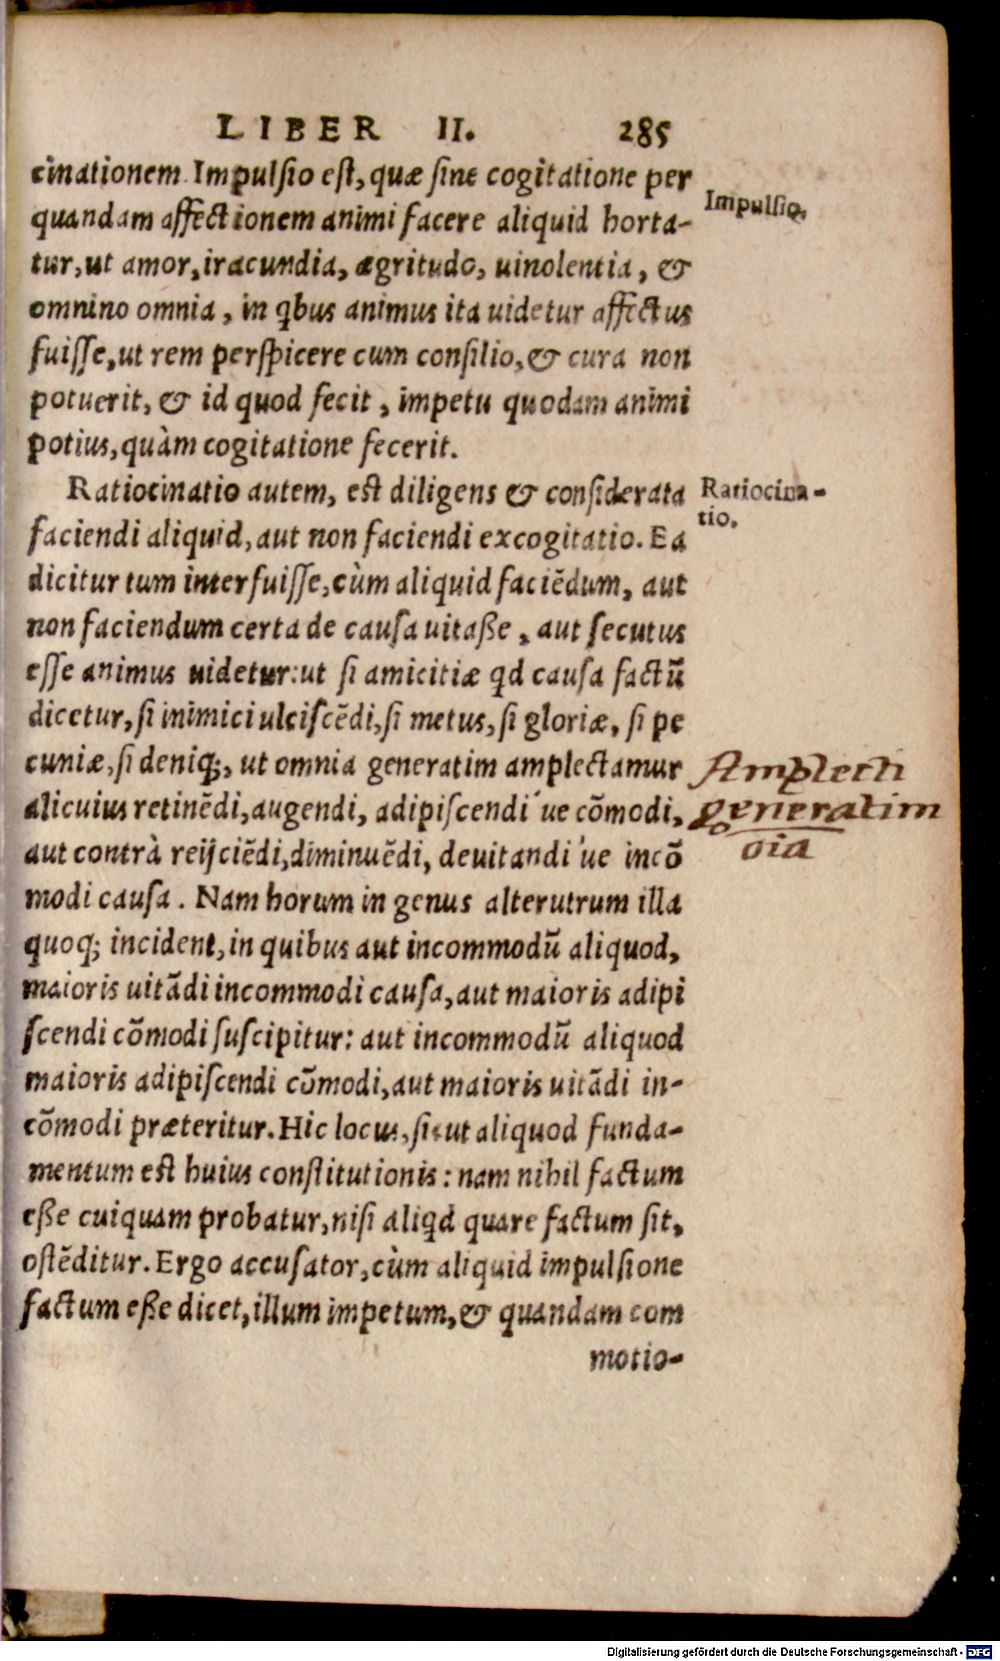 LIBER II. 285
cinationem. Impulsio est, quæ sine cogitatione per
quandam affectionem animi facere aliquid horta-
Impulsio.
tur, ut amor, iracundia, ægritudo, uinolentia, &
omnino omnia, in qbus animus ita uidetur affectus
fuisse, ut rem perspicere cum consilio, & cura non
potuerit, & id quod fecit, impetu quodam animi
potius, quàm cogitatione fecerit.
Ratiocinatio autem, est diligens & considerata
Ratiocina-
tio.
faciendi aliquid, aut non faciendi excogitatio. Ea
dicitur tum interfuisse, cùm aliquid faciēdum, aut
non faciendum certa de causa uitaße, aut secutus
esse animus uidetur: ut si amicitiæ qd causa factū
dicetur, si inimici ulciscēdi, si metus, si gloriæ, si pe
cuniæ, si deniq;, ut omnia generatim amplectamur
Amplecti
generatim
oīa
alicuius retinēdi, augendi, adipiscendi ue cōmodi,
aut contrà reijciēdi, diminuēdi, deuitandi ue incō
modi causa. Nam horum in genus alterutrum illa
quoq; incident, in quibus aut incommodū aliquod,
maioris uitādi incommodi causa, aut maioris adipi
scendi cōmodi suscipitur: aut incommodū aliquod
maioris adipiscendi cōmodi, aut maioris uitādi in-
cōmodi præteritur. Hic locus, sicut aliquod funda-
mentum est huius constitutionis: nam nihil factum
eße cuiquam probatur, nisi aliqd quare factum sit,
ostēditur. Ergo accusator, cùm aliquid impulsione
factum eße dicet, illum impetum, & quandam com
motio-
Digitalisierung gefördert durch die Deutsche Forschungsgemeinschaft - DFG